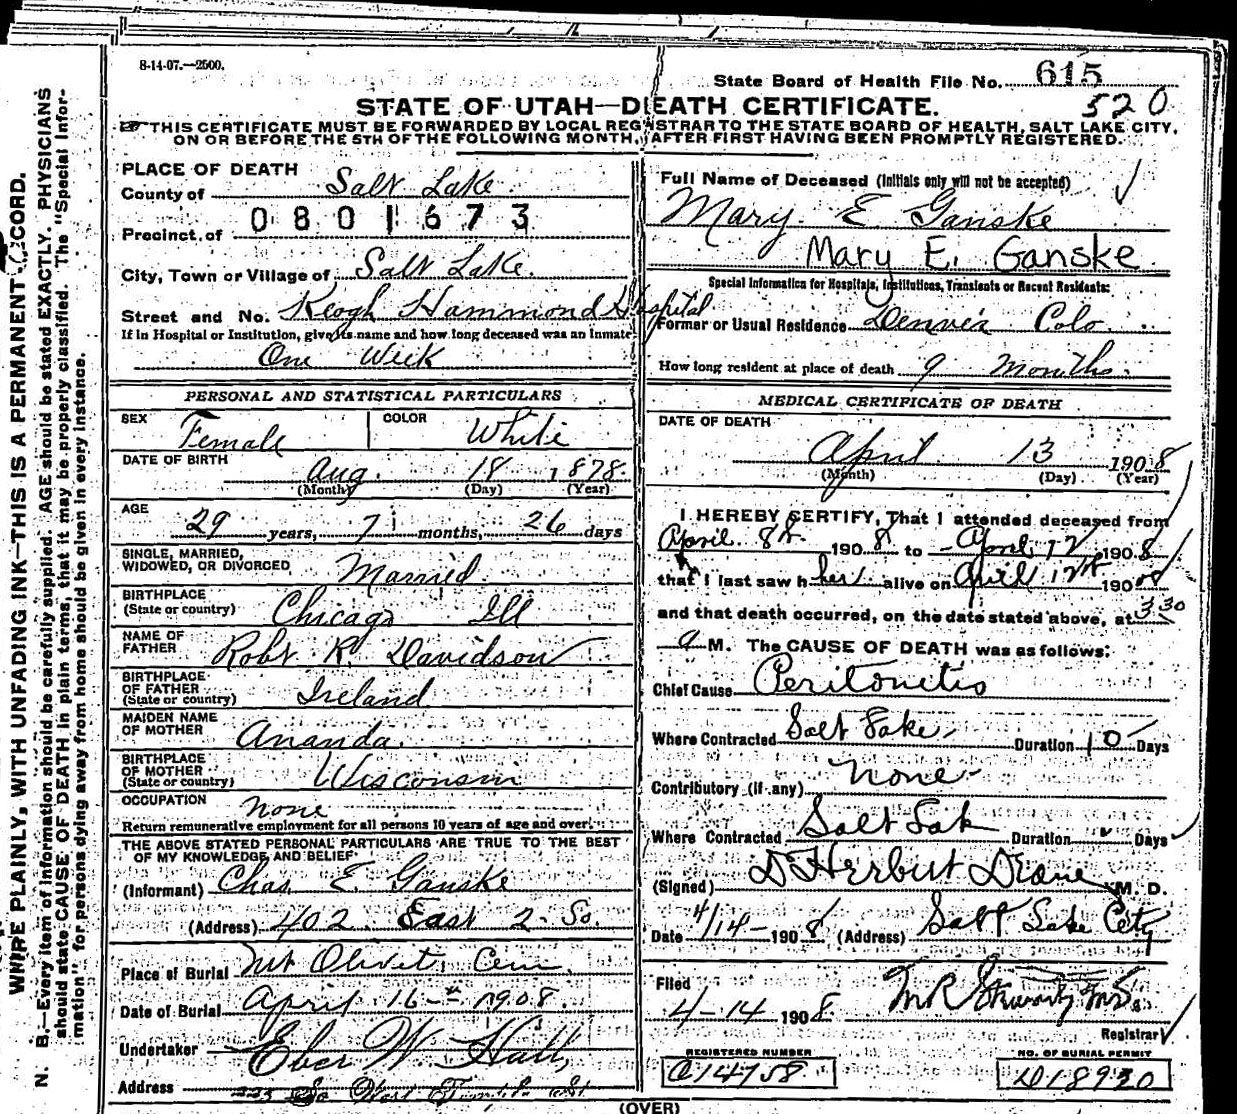 8-14-07.—2500.
State Board of Health File No. 615
520
STATE OF UTAH—DEATH CERTIFICATE.
THIS CERTIFICATE MUST BE FORWARDED BY LOCAL REGISTRAR TO THE STATE BOARD OF HEALTH, SALT LAKE CITY,
ON OR BEFORE THE 5TH OF THE FOLLOWING MONTH, AFTER FIRST HAVING BEEN PROMPTLY REGISTERED.
WRITE PLAINLY, WITH UNFADING INK—THIS IS A PERMANENT RECORD.
N. B.—Every item of information should be carefully supplied. AGE should be stated EXACTLY. PHYSICIANS
should state CAUSE OF DEATH in plain terms, that it may be properly classified. The "Special Infor-
mation" for persons dying away from home should be given in every instance.
PLACE OF DEATH
County of Salt Lake
0801673
Precinct of
City, Town or Village of Salt Lake
Street and No. Keogh Hammond Hospital
If in Hospital or Institution, give its name and how long deceased was an Inmate
One Week
PERSONAL AND STATISTICAL PARTICULARS
SEX Female COLOR White
DATE OF BIRTH Aug. 18 1878
(Month) (Day) (Year)
AGE
29 years, 7 months, 26 days
SINGLE, MARRIED,
WIDOWED, OR DIVORCED Married
BIRTHPLACE
(State or country) Chicago Ill
NAME OF
FATHER Robt. R. Davidson
BIRTHPLACE
OF FATHER
(State or country) Ireland
MAIDEN NAME
OF MOTHER Ananda
BIRTHPLACE
OF MOTHER
(State or country) Wisconsin
OCCUPATION none
Return remunerative employment for all persons 10 years of age and over.
THE ABOVE STATED PERSONAL PARTICULARS ARE TRUE TO THE BEST
OF MY KNOWLEDGE AND BELIEF
(Informant) Chas. E. Ganske
(Address) 402 East 2 So.
Place of Burial Mt Olivet Cem
Date of Burial April 16 1908.
Undertaker Eber W. Hall
Address So West Temple St
Full Name of Deceased (Initials only will not be accepted)
Mary E Ganske
Mary E. Ganske
Special Information for Hospitals, Institutions, Transients or Recent Residents:
Former or Usual Residence Denver Colo
How long resident at place of death 9 months.
MEDICAL CERTIFICATE OF DEATH
DATE OF DEATH
April 13 1908
(Month) (Day) (Year)
I HEREBY CERTIFY, That I attended deceased from
April 8th 1908 to April 12 1908
that I last saw her alive on April 12th 1908
and that death occurred, on the date stated above, at 3 30
a M. The CAUSE OF DEATH was as follows:
Chief Cause Peritonitis
Where Contracted Salt Lake Duration 10 Days
Contributory (if any) None
Where Contracted Salt Lak Duration Days
(Signed) D Herbert M. D.
Date 4/14-1908 (Address) Salt Lake City
Filed
4-14 1908
Registrar
REGISTERED NUMBER
C14758
NO. OF BURIAL PERMIT
D18920
(OVER)